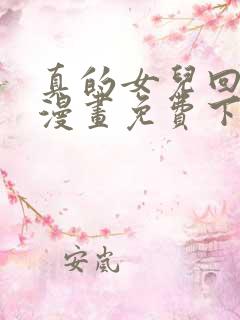 真的女兒回
漫畫免費下
安嵐